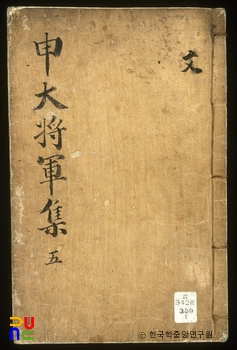 文
申大將軍集 五
3428
339
1
© 한국학중앙연구원